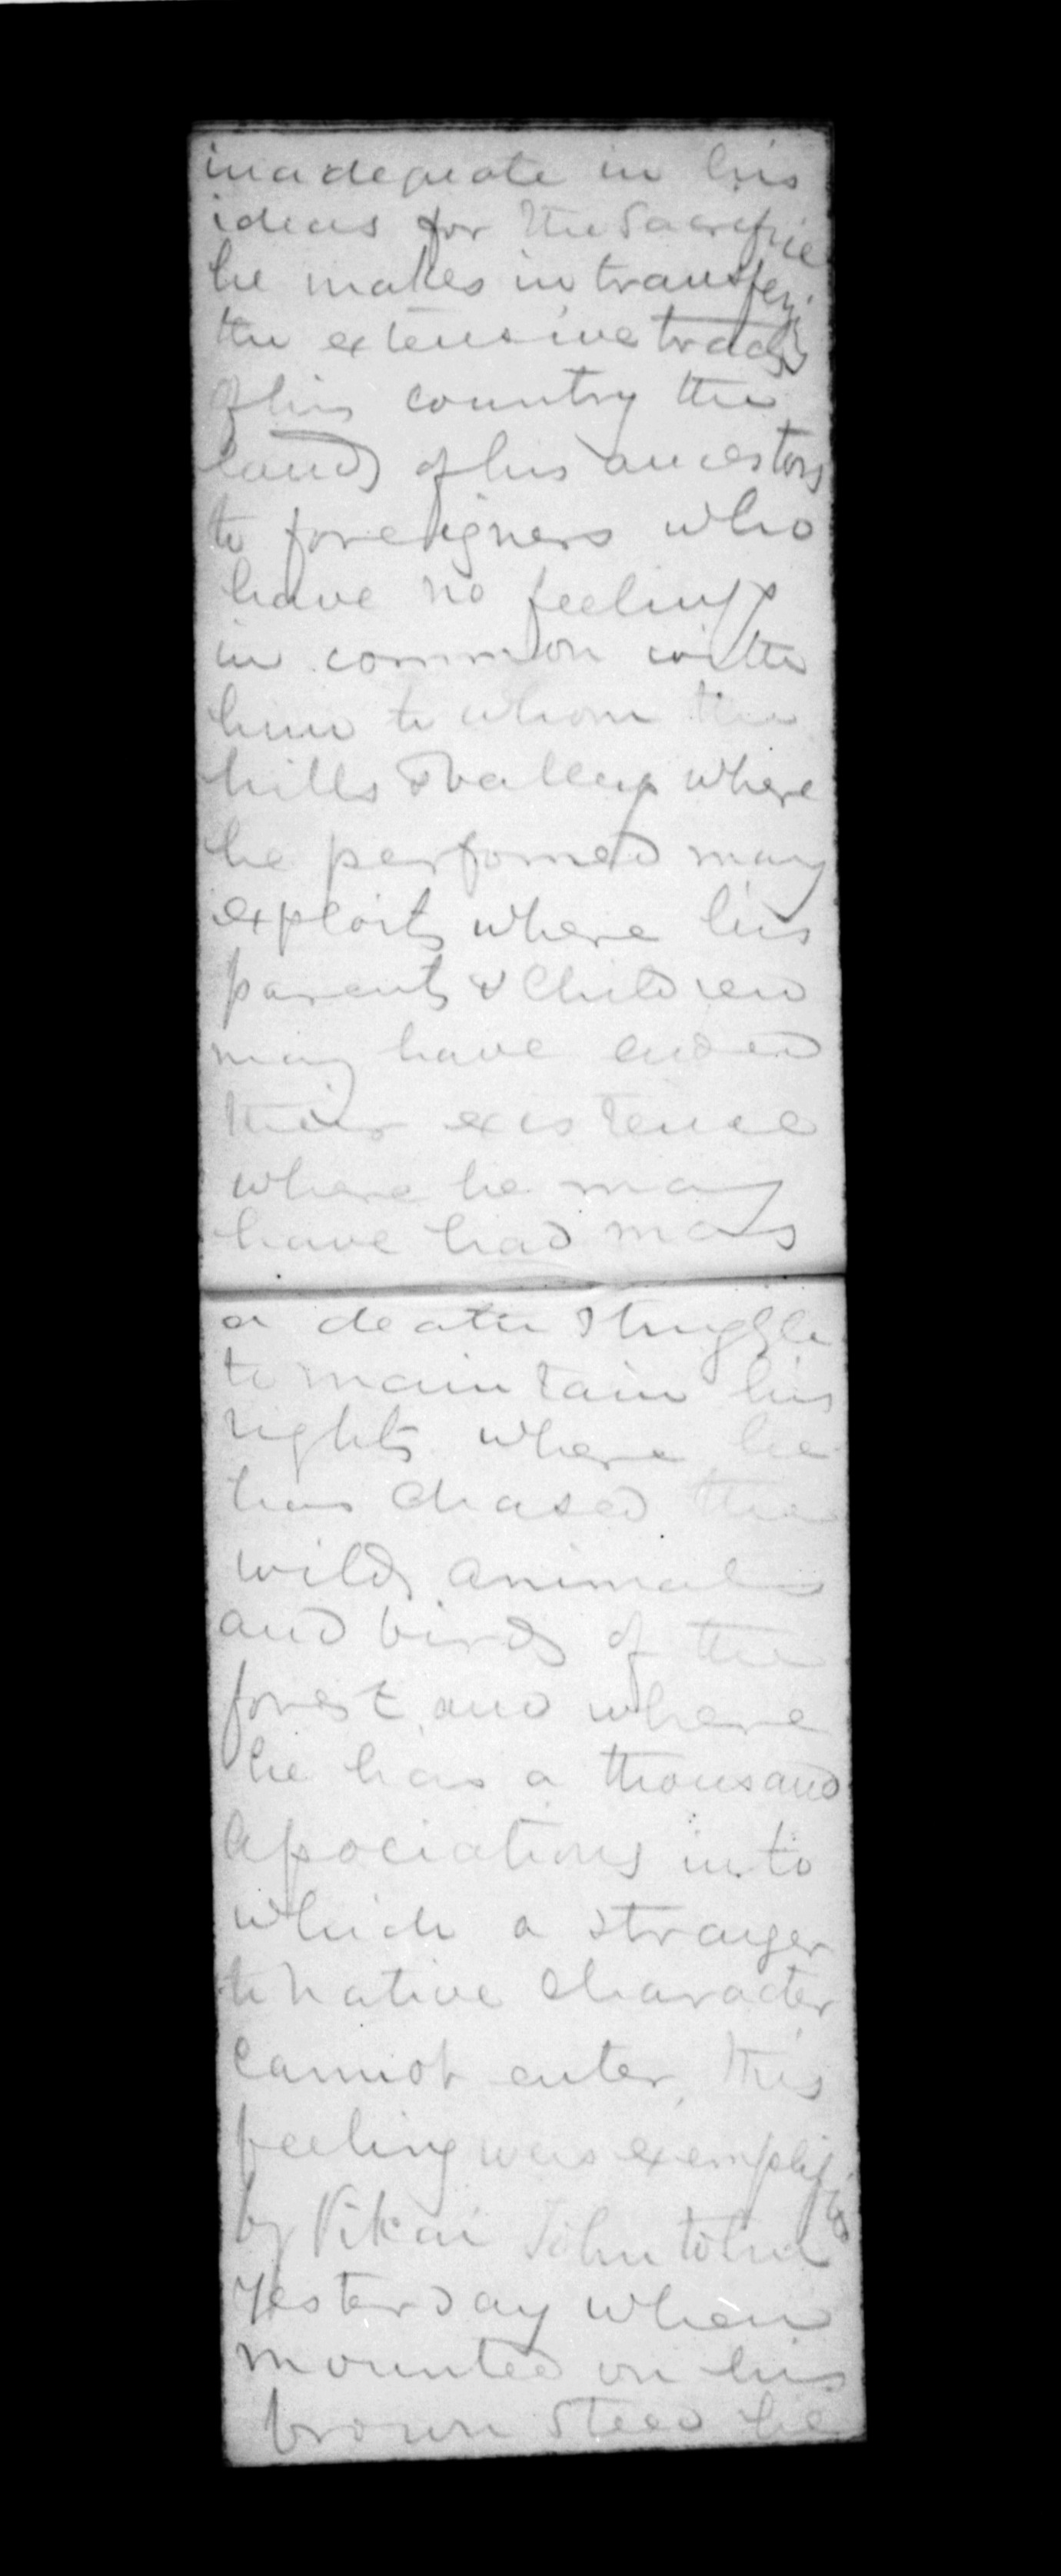 inadequate in his
ideas for the Sacrifice
he makes in transferring
the extensive tracts
of his country the
lands of his ancestors
to foreigners who
have no feelings
in common with
him to whom the
hills & valleys where
he perfomed many
exploits where his
parents & Children
may have ended
their existence
where he may
have had
a death struggle
to maintain his
rights where he
has chased the
wild animals
and birds of the
forest and where
he has a thousand
associations into
which a stranger
to native character
cannot enter, this
feeling was exemplified
by John
yesterday when
mounted on his
brown Steed he